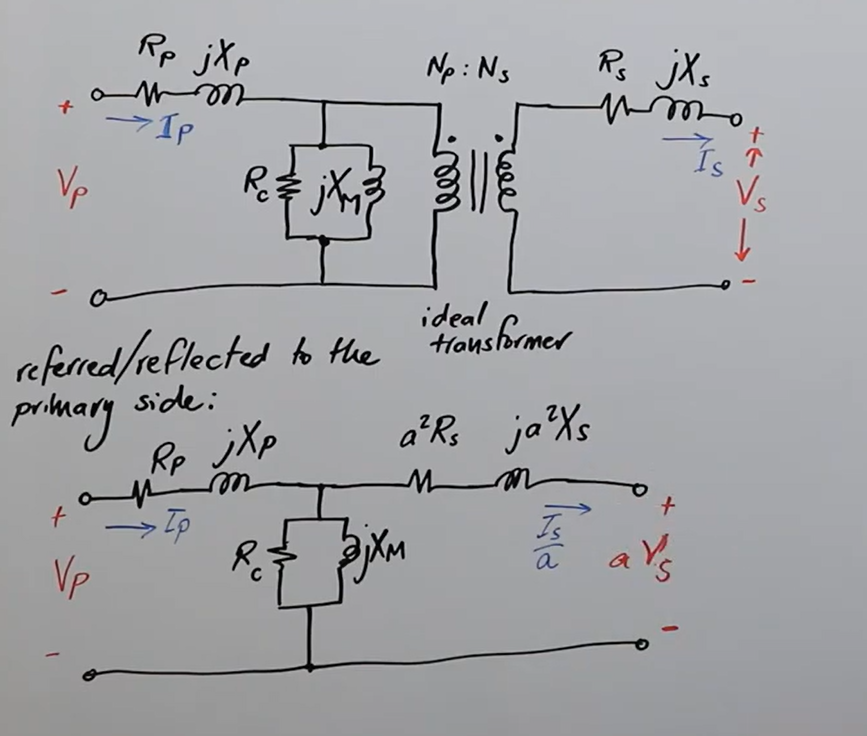 Rp jXp Np : Ns Rs jXs
+ Ip + 
Vp Rc jXM Is Vs
- -
ideal
transformer
referred/reflected to the
primary side:
Rp jXp a²Rs ja²Xs
+ Ip Is/a +
Vp Rc jXM a Vs
- -